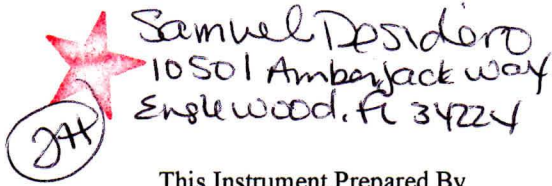 Samuel Desidero
10501 Amberjack way
Englewood, FL 34224
This Instrument Prepared By